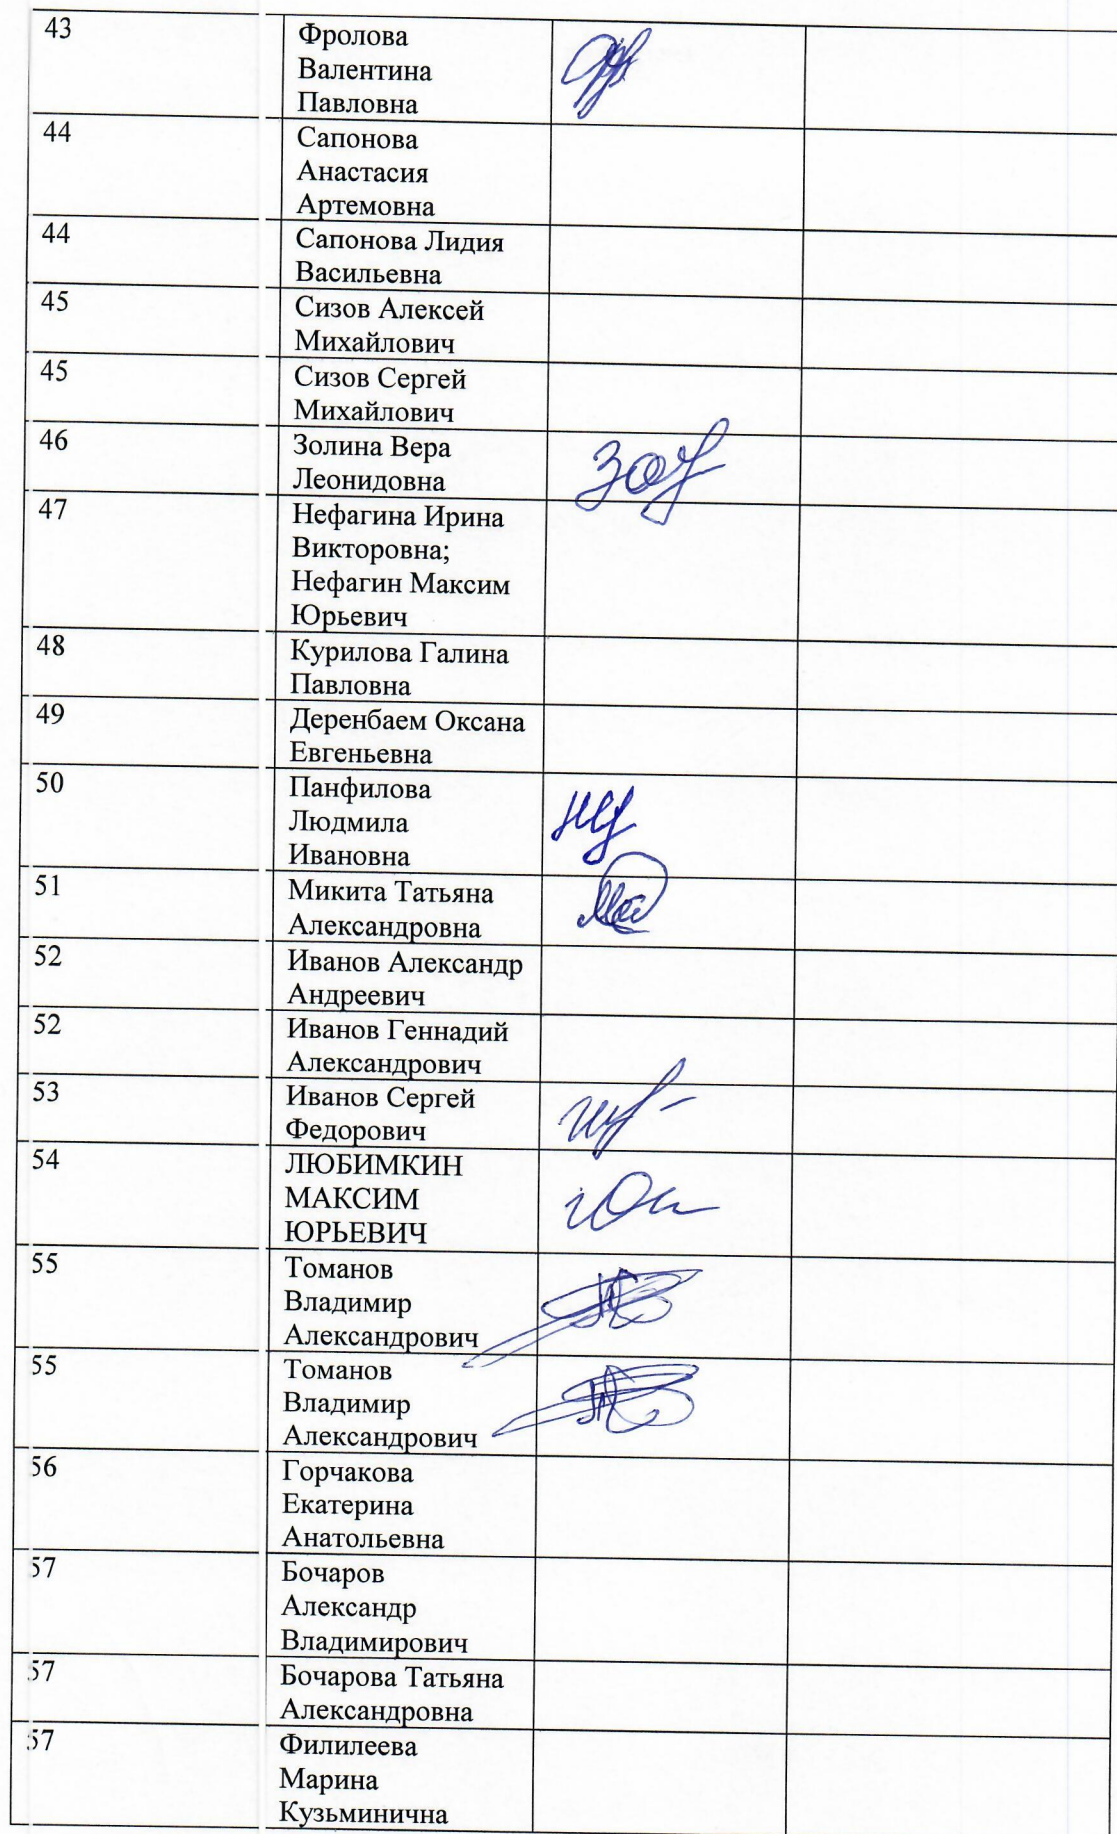 43 Фролова
Валентина
Павловна
44 Сапонова
Анастасия
Артемовна
44 Сапонова Лидия
Васильевна
45 Сизов Алексей
Михайлович
45 Сизов Сергей
Михайлович
46 Золина Вера
Леонидовна
47 Нефагина Ирина
Викторовна;
Нефагин Максим
Юрьевич
48 Курилова Галина
Павловна
49 Деренбаем Оксана
Евгеньевна
50 Панфилова
Людмила
Ивановна
51 Микита Татьяна
Александровна
52 Иванов Александр
Андреевич
52 Иванов Геннадий
Александрович
53 Иванов Сергей
Федорович
54 ЛЮБИМКИН
МАКСИМ
ЮРЬЕВИЧ
55 Томанов
Владимир
Александрович
55 Томанов
Владимир
Александрович
56 Горчакова
Екатерина
Анатольевна
57 Бочаров
Александр
Владимирович
57 Бочарова Татьяна
Александровна
57 Филилеева
Марина
Кузьминична